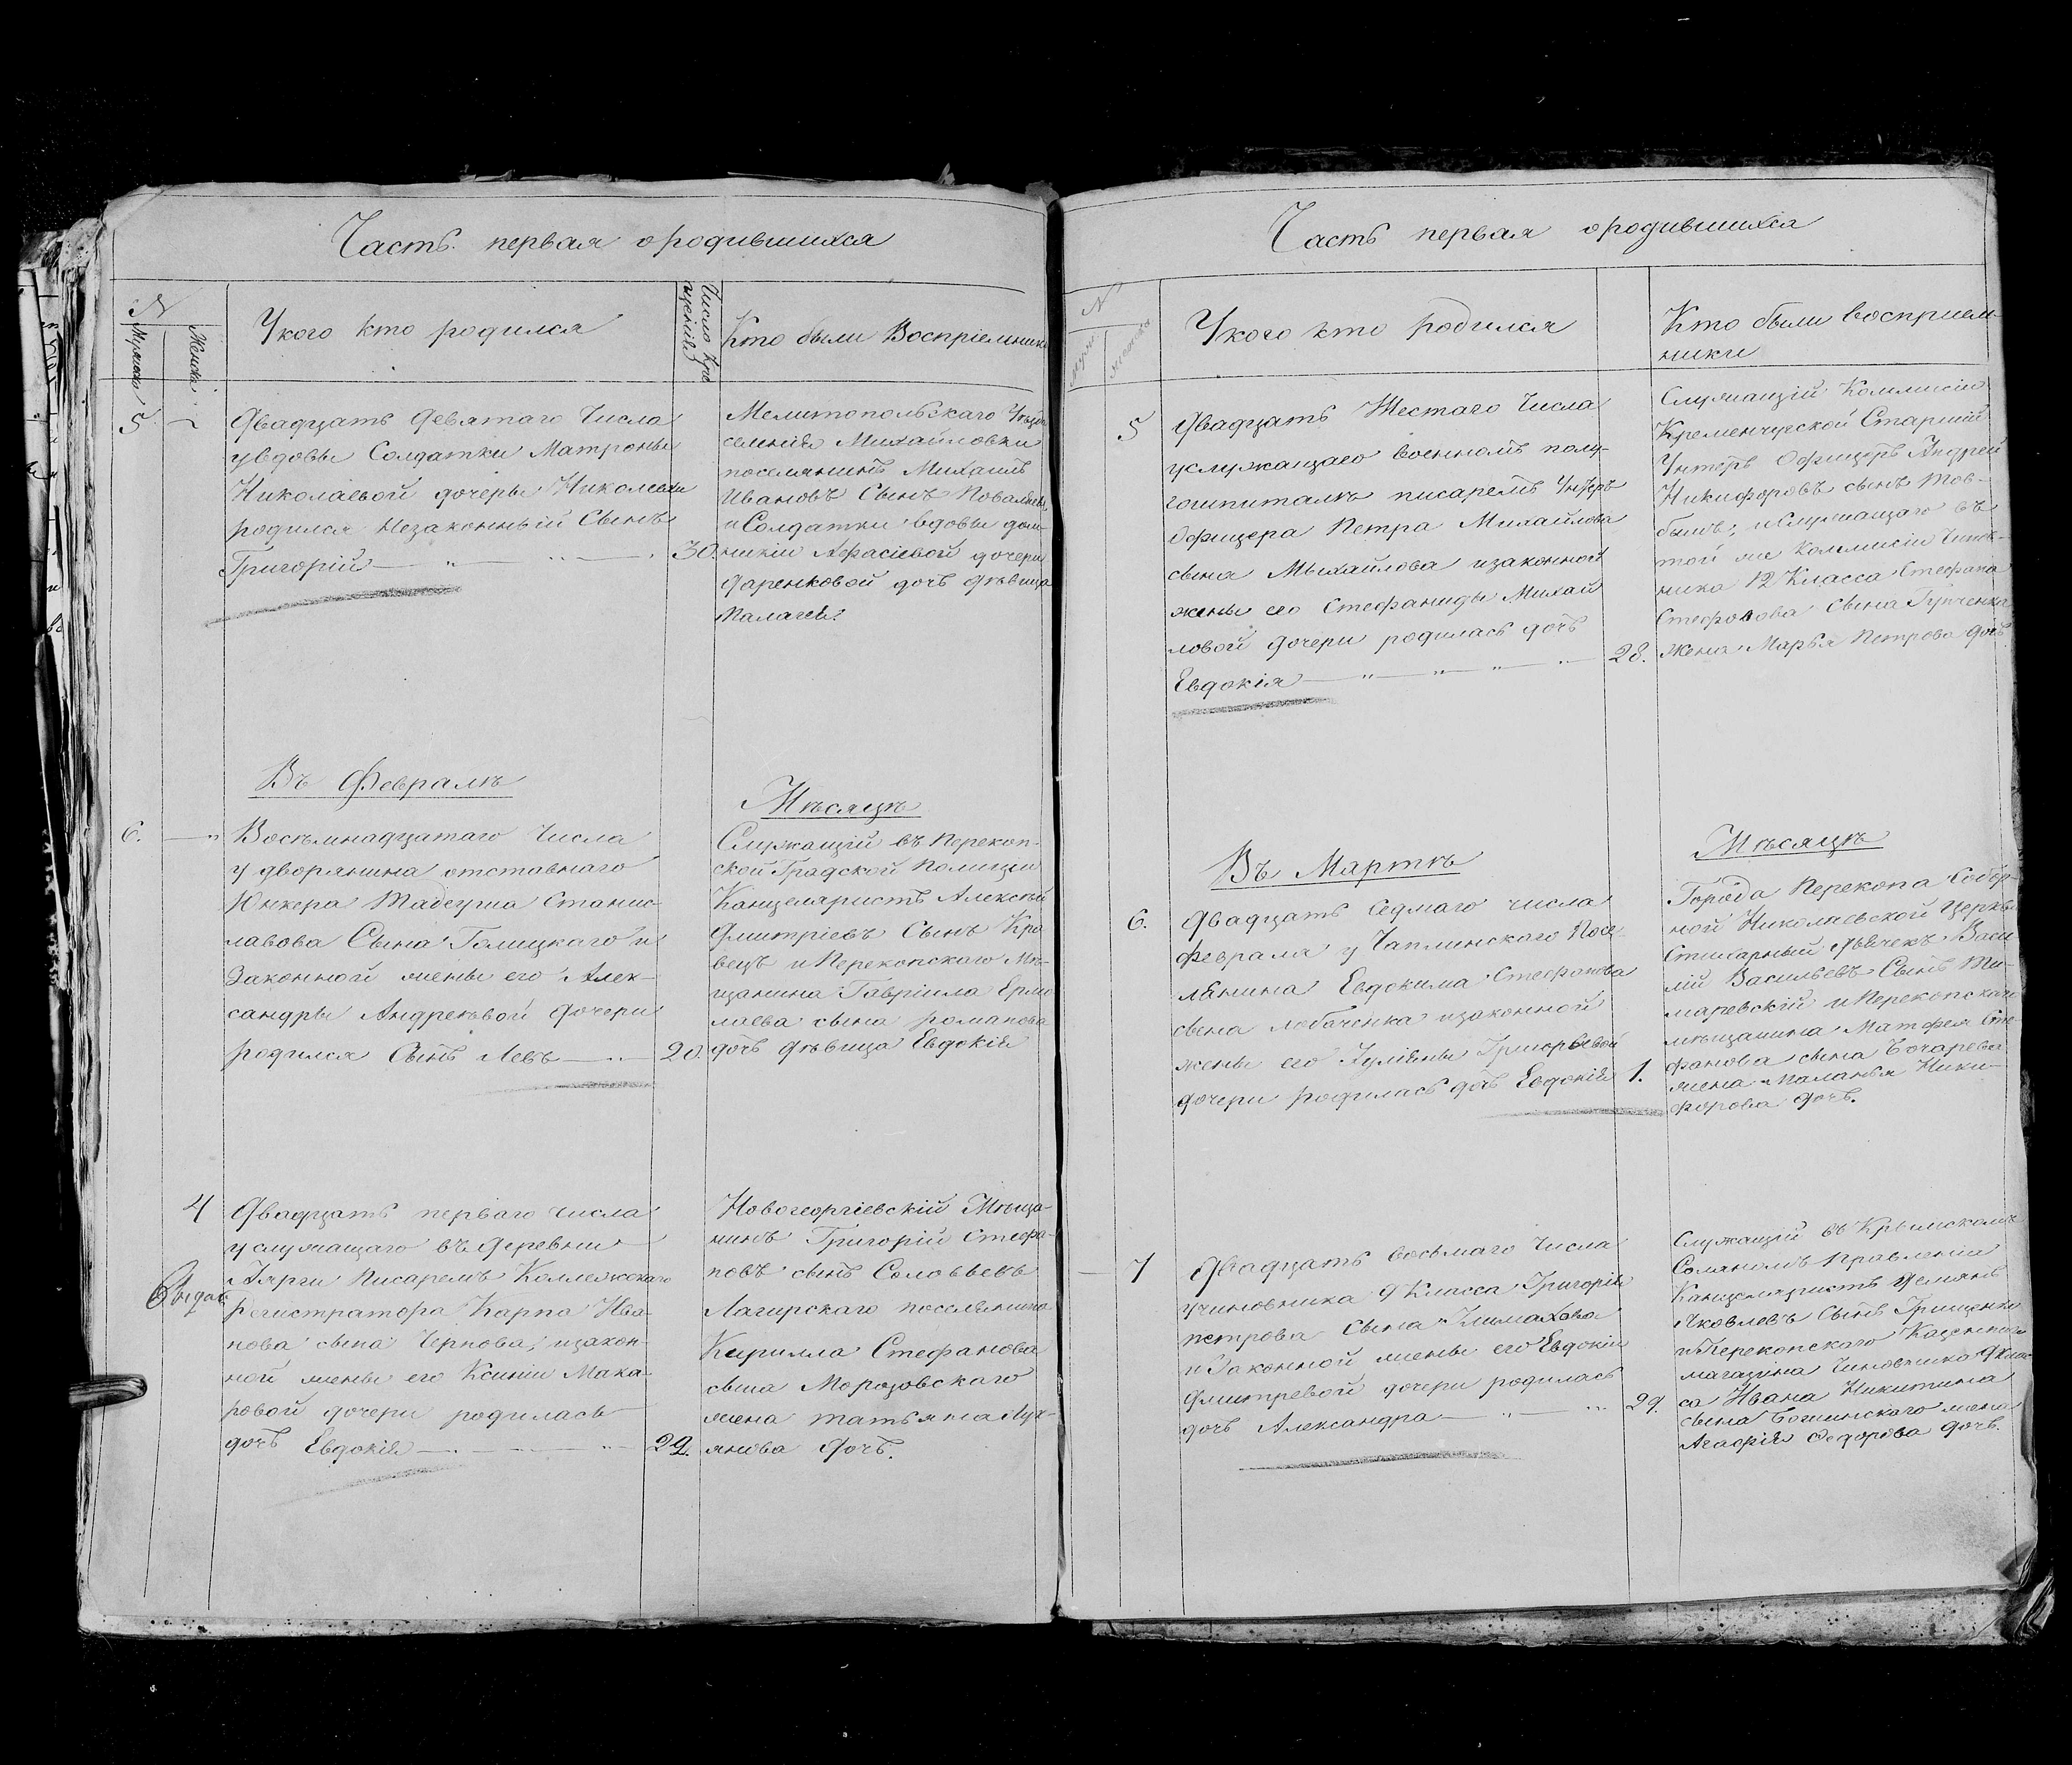 Часть первая о родившихся
N
Мужеска
Женска
У кого кто родился
Число Кре
щенія
Кто были Воспріемники
5.
Двадцать девятаго Числа
у вдовы Солдатки Матроны
Николаевой дочеры Николаевы
родился Незаконный Сынъ
Григорій
30.
Мелитопольскаго Уѣзда
селенія Михайловки
поселянинъ Михаилъ
Ивановъ Сынъ
и Солдатки вдовы дом
никіи Афасіевой дочери
Фаренковой дочь дѣвица
Палагея.
Въ Февралѣ
Мѣсяцѣ
6.
Восѣмнадцатаго Числа
у дворянина отставнаго
Юнкера Тадеуша Станис-
лавова Сына Голицкаго и
Законной жены его Алек-
сандры Андреѣвой дочери
родился Сынъ Левъ
20.
Служащій въ Перекоп-
ской Градской Полиціи
Канцеляристъ Алексѣй
Дмитріевъ Сынъ Кра
вецъ и Перекопскаго Мѣ-
щанина Гавріила Ермо
лаева сына романова
дочь дѣвица Евдокія
4
Двадцать перваго числа
у служащаго въ деревни
Писаремъ Коллежскаго
регистратора Карпа Ива-
нова сына Чернова, изакон-
ной жены его Ксиніи Мака-
ровой дочери родилась
дочь Евдокія
22.
Новогеоргіевскій Мѣща-
нинъ Григорій Стефа-
новъ сынъ Соловьевъ
поселянина
Кирилла Стефанова
сына Морозовскаго
жена татьяна Лук-
янова Дочь.
Часть первая о родившихся
N
муж
женска
У кого кто родился
Кто были восприем-
ники
5
Двадцать Шестаго Числа
у служащаго военномъ полу-
гошпиталѣ писаремъ Унтеръ
Офицера Петра Михайлова
сына Михайлова изаконной
жены его Стефаниды Михай
ловой дочери родилась дочь
Евдокія
28.
Служащій Коммисіи
Кременчугской Старшій
Унтеръ Офицеръ Андрей
Никифоровъ сынъ Тов-
и служащаго въ
той же Коммисіи Чинов-
ника 12 Класса Стефана
сына
жена Марья Петрова дочь
Въ Мартѣ
Мѣсяцѣ
6.
Двадцать Седмаго числа
февраля у Чаплинскаго Посе-
лянина Евдокима Стефанова
сына Лобаченка изаконной
жены его Іуліяны Григорьевой
дочери родилась дочь Евдокія
1.
Города Перекопа Собор-
ной Николаевской Церкви
Стихарный Дьячекъ Васи
лій Васильевъ Сынъ Ти-
маревскій и Перекопскаго
мѣщанина Матфея Сте-
фанова сына Бочарева
жена Маланья Ники-
форова дочь.
7
Двадцать восьмаго Числа
у чиновника 9 Класса Григорія
петрова Сына Климахова
и Законной жены его Евдокіи
Дмитревой дочери родилась
дочь Александра
29.
Служащій въ Крымскомъ
Соляномъ Правленіи
Канцеляристъ Демьянъ
Яковлевъ Сынъ Грищенко
и Перекопскаго Казеннаго
магазина Чиновника 9 Клас
са Ивана Никитина
сына жена
Агафія Федорова дочь.